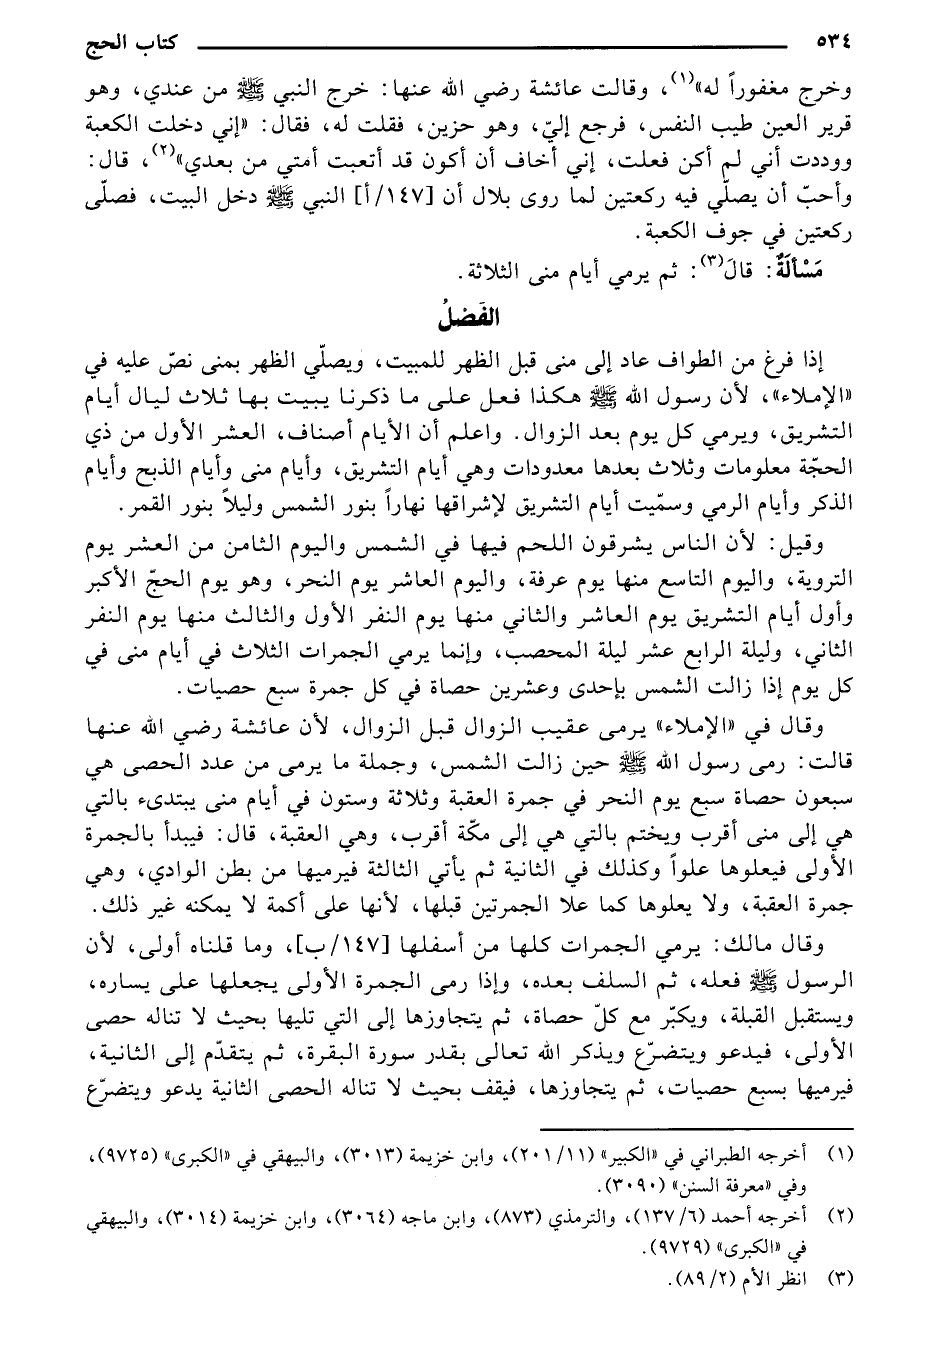 ٥٣٤ كتاب الحج
وخرج مغفوراً له»(١)، وقالت عائشة رضي الله عنها: خرج النبي ﷺ من عندي، وهو
قرير العين طيب النفس، فرجع إليّ، وهو حزين، فقلت له، فقال: «إني دخلت الكعبة
ووددت أني لم أكن فعلت، إني أخاف أن أكون قد أتعبت أمتي من بعدي»(٢)، قال:
وأحبّ أن يصلّي فيه ركعتين لما روى بلال أن [١٤٧/أ] النبي ﷺ دخل البيت، فصلّى
ركعتين في جوف الكعبة.
مَسْألَةٌ: قالَ(٣): ثم يرمي أيام منى الثلاثة.
الفَضلُ
إذا فرغ من الطواف عاد إلى منى قبل الظهر للمبيت، ويصلّي الظهر بمنى نصّ عليه في
«الإملاء»، لأن رسول الله ﷺ هكذا فعل على ما ذكرنا يبيت بها ثلاث ليال أيام
التشريق، ويرمي كل يوم بعد الزوال. واعلم أن الأيام أصناف، العشر الأول من ذي
الحجّة معلومات وثلاث بعدها معدودات وهي أيام التشريق، وأيام منى وأيام الذبح وأيام
الذكر وأيام الرمي وسمّيت أيام التشريق لإشراقها نهاراً بنور الشمس وليلاً بنور القمر.
وقيل: لأن الناس يشرقون اللحم فيها في الشمس واليوم الثامن من العشر يوم
التروية، واليوم التاسع منها يوم عرفة، واليوم العاشر يوم النحر، وهو يوم الحجّ الأكبر
وأول أيام التشريق يوم العاشر والثاني منها يوم النفر الأول والثالث منها يوم النفر
الثاني، وليلة الرابع عشر ليلة المحصب، وإنما يرمي الجمرات الثلاث في أيام منى في
كل يوم إذا زالت الشمس بإحدى وعشرين حصاة في كل جمرة سبع حصيات.
وقال في «الإملاء» يرمى عقيب الزوال قبل الزوال، لأن عائشة رضي الله عنها
قالت: رمى رسول الله ﷺ حين زالت الشمس، وجملة ما يرمى من عدد الحصى هي
سبعون حصاة سبع يوم النحر في جمرة العقبة وثلاثة وستون في أيام منى يبتدىء بالتي
هي إلى منى أقرب ويختم بالتي هي إلى مكّة أقرب، وهي العقبة، قال: فيبدأ بالجمرة
الأولى فيعلوها علواً وكذلك في الثانية ثم يأتي الثالثة فيرميها من بطن الوادي، وهي
جمرة العقبة، ولا يعلوها كما علا الجمرتين قبلها، لأنها على أكمة لا يمكنه غير ذلك.
وقال مالك: يرمي الجمرات كلها من أسفلها [١٤٧/ب]، وما قلناه أولى، لأن
الرسول ﷺ فعله، ثم السلف بعده، وإذا رمى الجمرة الأولى يجعلها على يساره،
ويستقبل القبلة، ويكبّر مع كلّ حصاة، ثم يتجاوزها إلى التي تليها بحيث لا تناله حصى
الأولى، فيدعو ويتضرّع ويذكر الله تعالى بقدر سورة البقرة، ثم يتقدّم إلى الثانية،
فيرميها بسبع حصيات، ثم يتجاوزها، فيقف بحيث لا تناله الحصى الثانية يدعو ويتضرّع
(١) أخرجه الطبراني في «الكبير» (٢٠١/١١)، وابن خزيمة (٣٠١٣)، والبيهقي في «الكبرى» (٩٧٢٥)،
وفي «معرفة السنن» (٣٠٩٠).
(٢) أخرجه أحمد (١٣٧/٦)، والترمذي (٨٧٣)، وابن ماجه (٣٠٦٤)، وابن خزيمة (٣٠١٤)، والبيهقي
في «الكبرى» (٩٧٢٩).
(٣) انظر الأم (٨٩/٢).